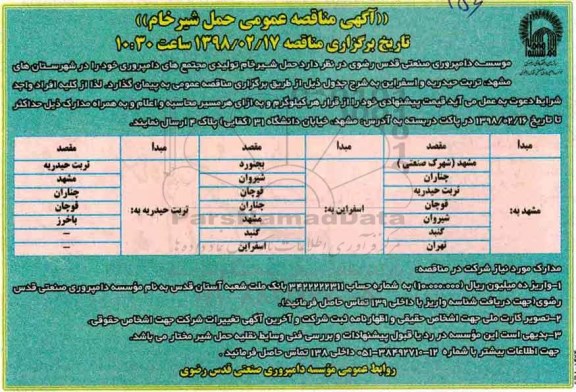 ((آگهی مناقصه عمومی حمل شیرخام))
تاریخ برگزاری مناقصه ۱۳۹۸/۰۲/۱۷ ساعت ۱۰:۳۰
موسسه دامپروری صنعتی قدس رضوی در نظر دارد حمل شیرخام تولیدی مجتمع های دامپروری خود را در شهرستان های
مشهد، تربت حیدریه و اسفراین به شرح جدول ذیل از طریق برگزاری مناقصه عمومی به پیمان گذارد. لذا از کلیه افراد واجد
شرایط دعوت به عمل می آید قیمت پیشنهادی خود را از قرار هر کیلوگرم و به ازای هر مسیر محاسبه و اعلام و به همراه مدارک ذیل حداکثر
تا تاریخ ۱۳۹۸/۰۲/۱۶ در پاکت دربسته به آدرس: مشهد، خیابان دانشگاه ۳۱ (کفایی) پلاک ۴ ارسال نمایند.
مبدا مقصد مبدا مقصد مبدا مقصد
مشهد به: مشهد (شهرک صنعتی) اسفراین به: بجنورد تربت حیدریه به: تربت حیدریه
چناران شیروان مشهد
تربت حیدریه قوچان چناران
قوچان چناران قوچان
شیروان مشهد باخرز
گنبد گنبد —
تهران اسفراین —
ParsNamadData
مدارک مورد نیاز شرکت در مناقصه:
۱-واریز ده میلیون ریال (۱۰.۰۰۰.۰۰۰) به شماره حساب ۳۴۲۲۲۲۲۳۱۱ بانک ملت شعبه آستان قدس به نام مؤسسه دامپروری صنعتی قدس
رضوی(جهت دریافت شناسه واریز با داخلی ۱۳۹ تماس حاصل فرمائید).
۲-تصویر کارت ملی جهت اشخاص حقیقی و اظهار نامه ثبت شرکت و آخرین آگهی تغییرات شرکت جهت اشخاص حقوقی.
۳-بدیهی است این مؤسسه در رد یا قبول پیشنهادات و بررسی فنی وسایط نقلیه حمل شیر مختار می باشد.
جهت اطلاعات بیشتر با شماره ۱۲-۳۸۴۹۲۷۱۰-۰۵۱ داخلی ۱۳۸ تماس حاصل فرمائید.
روابط عمومی مؤسسه دامپروری صنعتی قدس رضوی